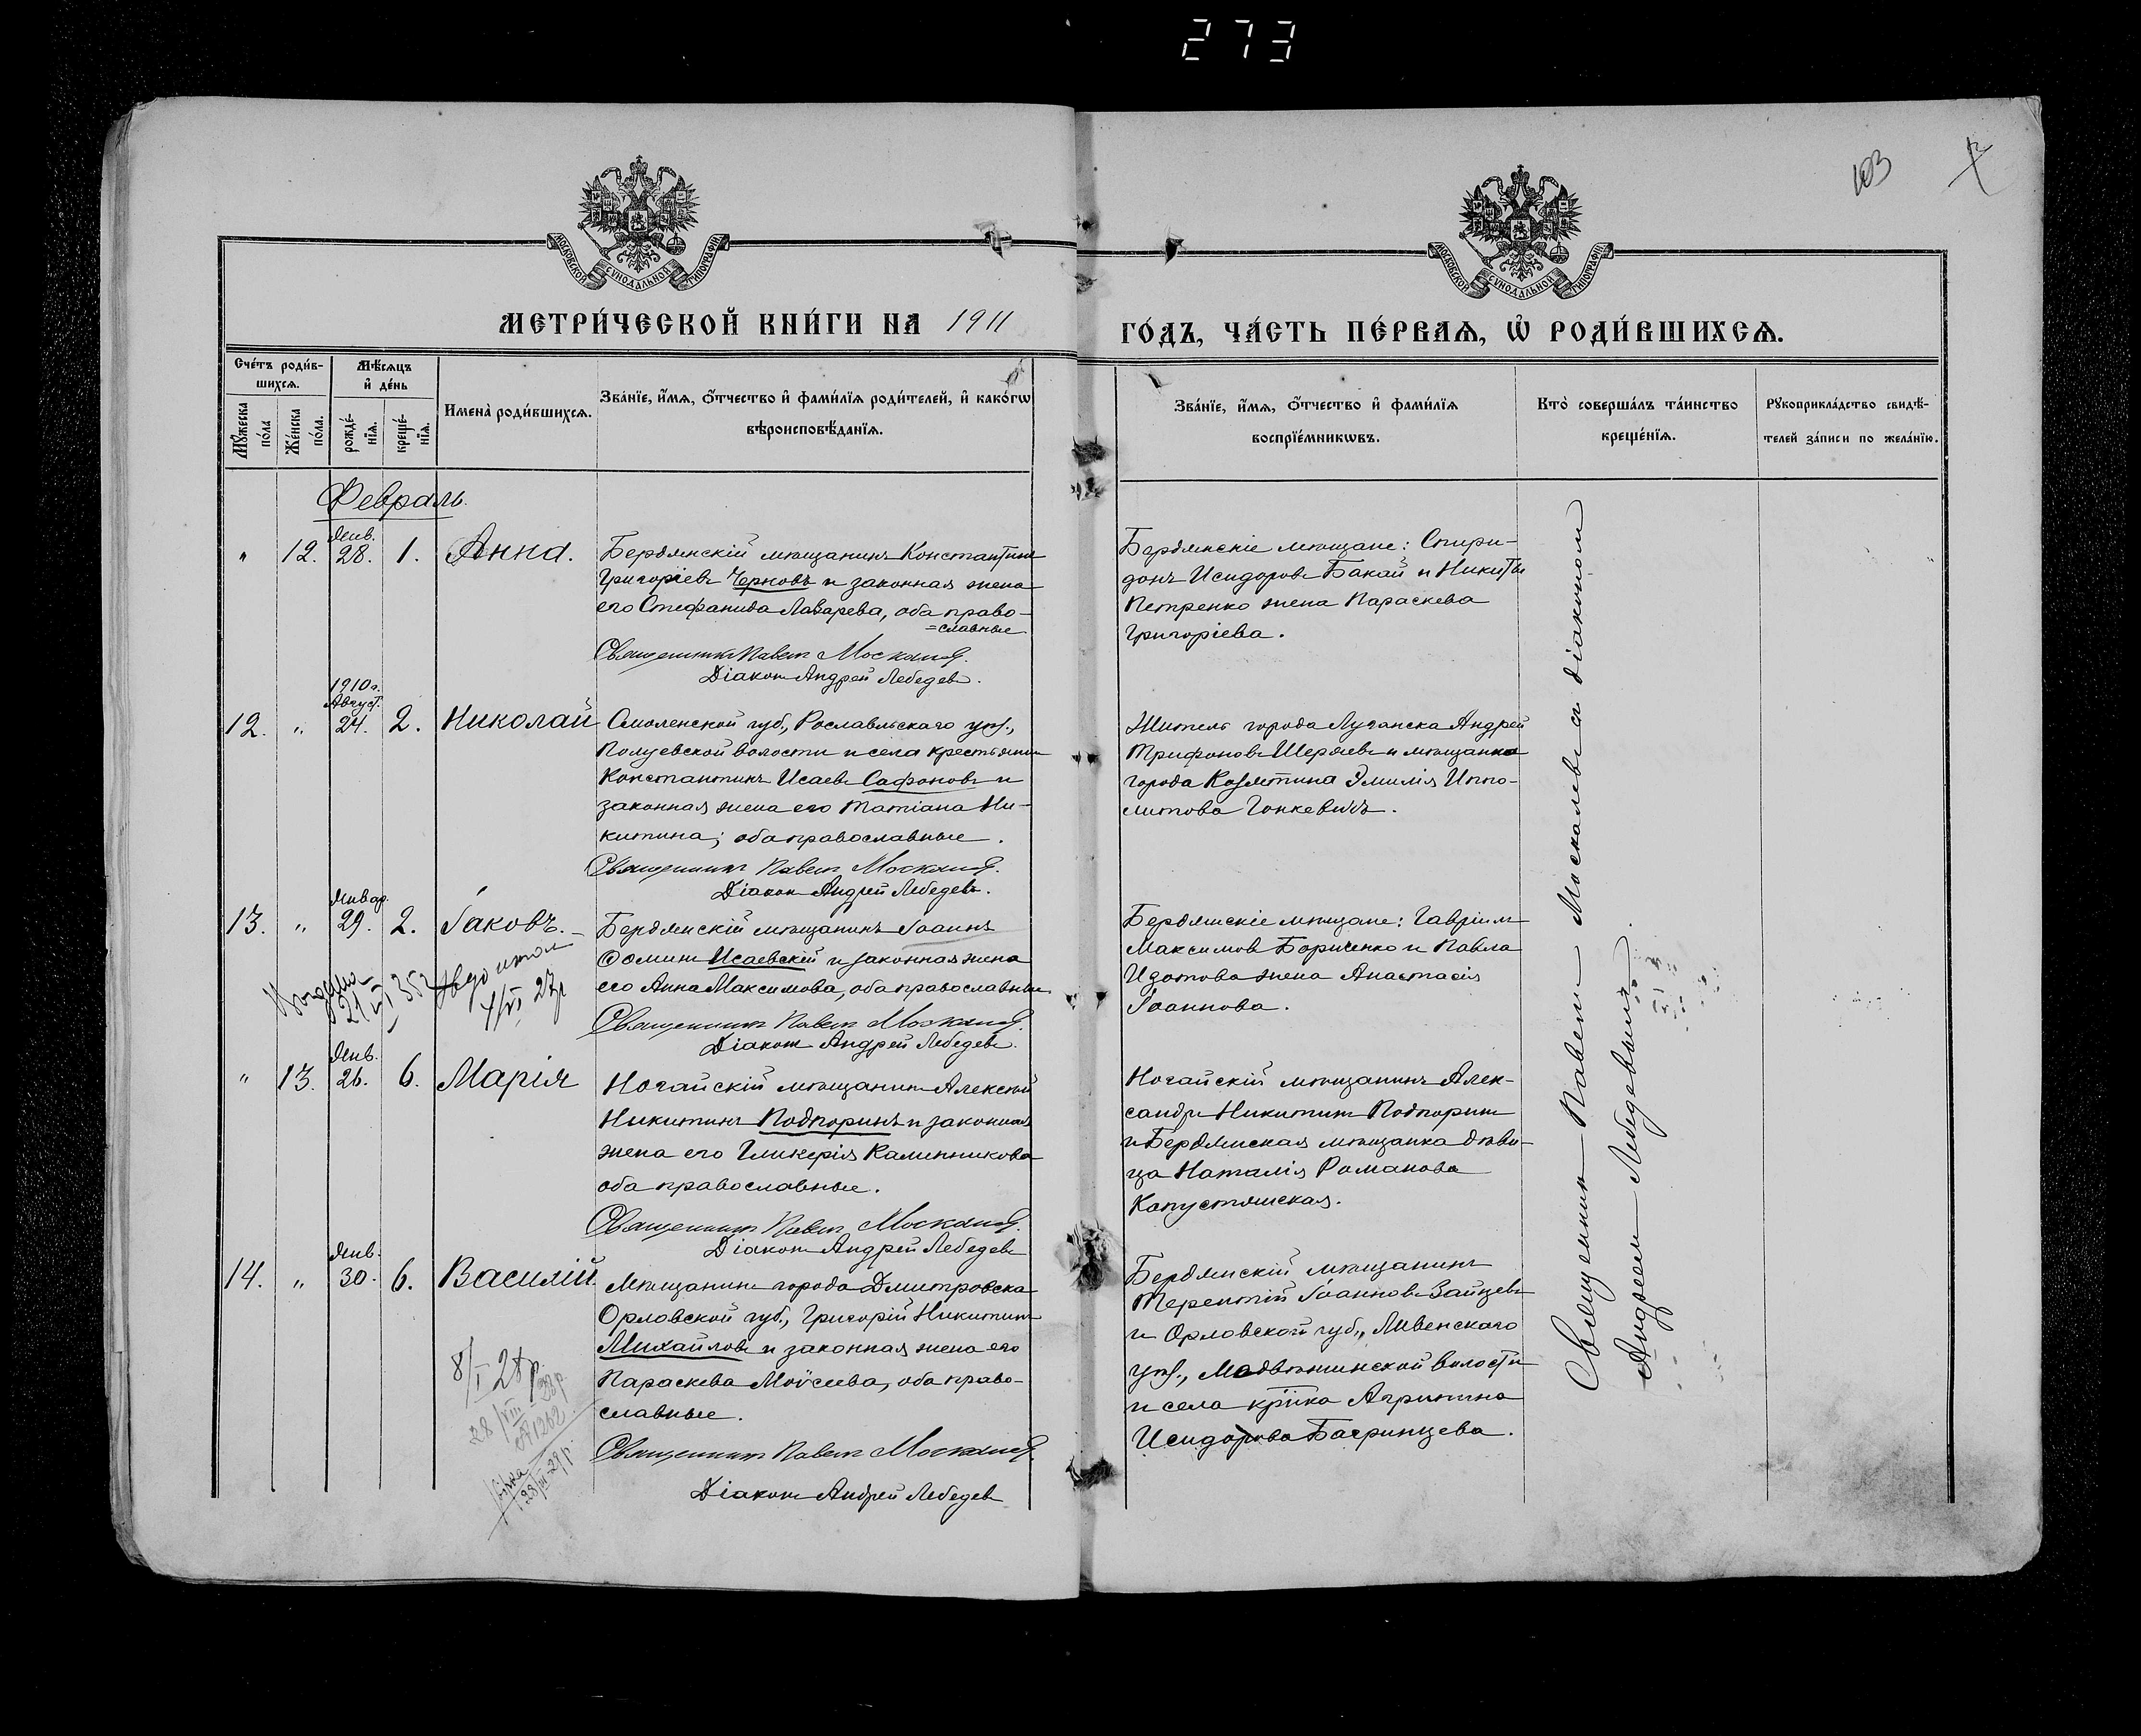 273
103
МОСКОВСКОЙ СѴНОДАЛЬНОЙ ТИПОГРАФІИ
МОСКОВСКОЙ СѴНОДАЛЬНОЙ ТИПОГРАФІИ
МЕТРИ́ЧЕСКОЙ КНИ́ГИ НА 1911
ГО́ДЪ, ЧА́СТЬ ПЕ́РВАѦ, Ѡ РОДИ́ВШИХСѦ.
Сче́тъ роди́в-
шихсѧ.
Мꙋ́жеска по́ла
Же́нска по́ла.
Мѣ́сѧцъ и҆ де́нь
рожде́-
нїѧ.
креще́-
нїѧ.
И҆мена̀ роди́вшихсѧ.
Зва́нїе, и҆́мѧ, ѻ҆́тчество и҆ фами́лїѧ роди́телей, и҆ како́гѡ
вѣроисповѣ́данїѧ.
Зва́нїе, и҆́мѧ, ѻ҆́тчество и҆ фами́лїѧ
воспрїе́мникѡвъ.
Кто̀ соверша́лъ та́инство
креще́нїѧ.
Рꙋкоприкла́дство свидѣ́-
телей за́писи по жела́нїю.
Февраль.
" 12. Янв. 28. 1. Анна.
Бердянскій мѣщанинъ Константинъ
Григоріевъ Черновъ и законная жена
его Стефанида Лазарева, оба право-
=славные
Священникъ Павелъ Москалевъ.
Діаконъ Андрей Лебедевъ.
Бердянскіе мѣщане: Спири-
донъ Исидоровъ Бакай и Никиты
Петренко жена Параскева
Григоріева.
12. " 1910 г. Август. 24. 2. Николай
Смоленской губ., Рославльскаго уѣз.,
Полуевской волости и села крестьянинъ
Константинъ Исаевъ Сафоновъ и
законная жена его Татіана Ни-
китина; оба православные.
Священникъ Павелъ Москалевъ.
Діаконъ Андрей Лебедевъ.
Житель города Луганска Андрей
Трифоновъ Шеряевъ и мѣщанка
города Козятина Эмилія Иппо-
литова Гонкевичъ.
13. " Январ. 29. 2. Іаковъ.
Бердянскій мѣщанинъ Іоаннъ
Ѳоминъ Исаевскій и законная жена
его Анна Максимова, оба православные
Священникъ Павелъ Москалевъ.
Діаконъ Андрей Лебедевъ.
Бердянскіе мѣщане: Гавріилъ
Максимов Борисенко и Павла
Изотова жена Анастасія
Іоаннова.
" 13. Янв. 26. 6. Марія
Ногайскій мѣщанинъ Алексѣй
Никитинъ Подпоринъ и законная
жена его Гликерія Калинникова
оба православные.
Священникъ Павелъ Москалевъ.
Діаконъ Андрей Лебедевъ
Ногайскій мѣщанинъ Алек-
сандръ Никитинъ Подпоринъ
и Бердянская мѣщанка дѣви-
ца Наталія Романова
Капустянская.
14. " Янв. 30. 6. Василій.
Мѣщанинъ города Дмитровска
Орловской губ., Григорій Никитинъ
Михайловъ и законная жена его
Параскева Моѵсеева, оба право-
славные.
Священникъ Павелъ Москалевъ.
Діаконъ Андрей Лебедевъ
8/I 28 р.
28/VIII 38 р.
№ 1262
Бердянскій мѣщанинъ
Терентій Іоанновъ Зайцевъ
и Орловской губ., Ливенскаго
уѣз., волости
и села кр҃нка Агрипина
Исидорова Багринцева.
Священникъ Павелъ Москалевъ съ діакономъ
Андреемъ Лебедевымъ.